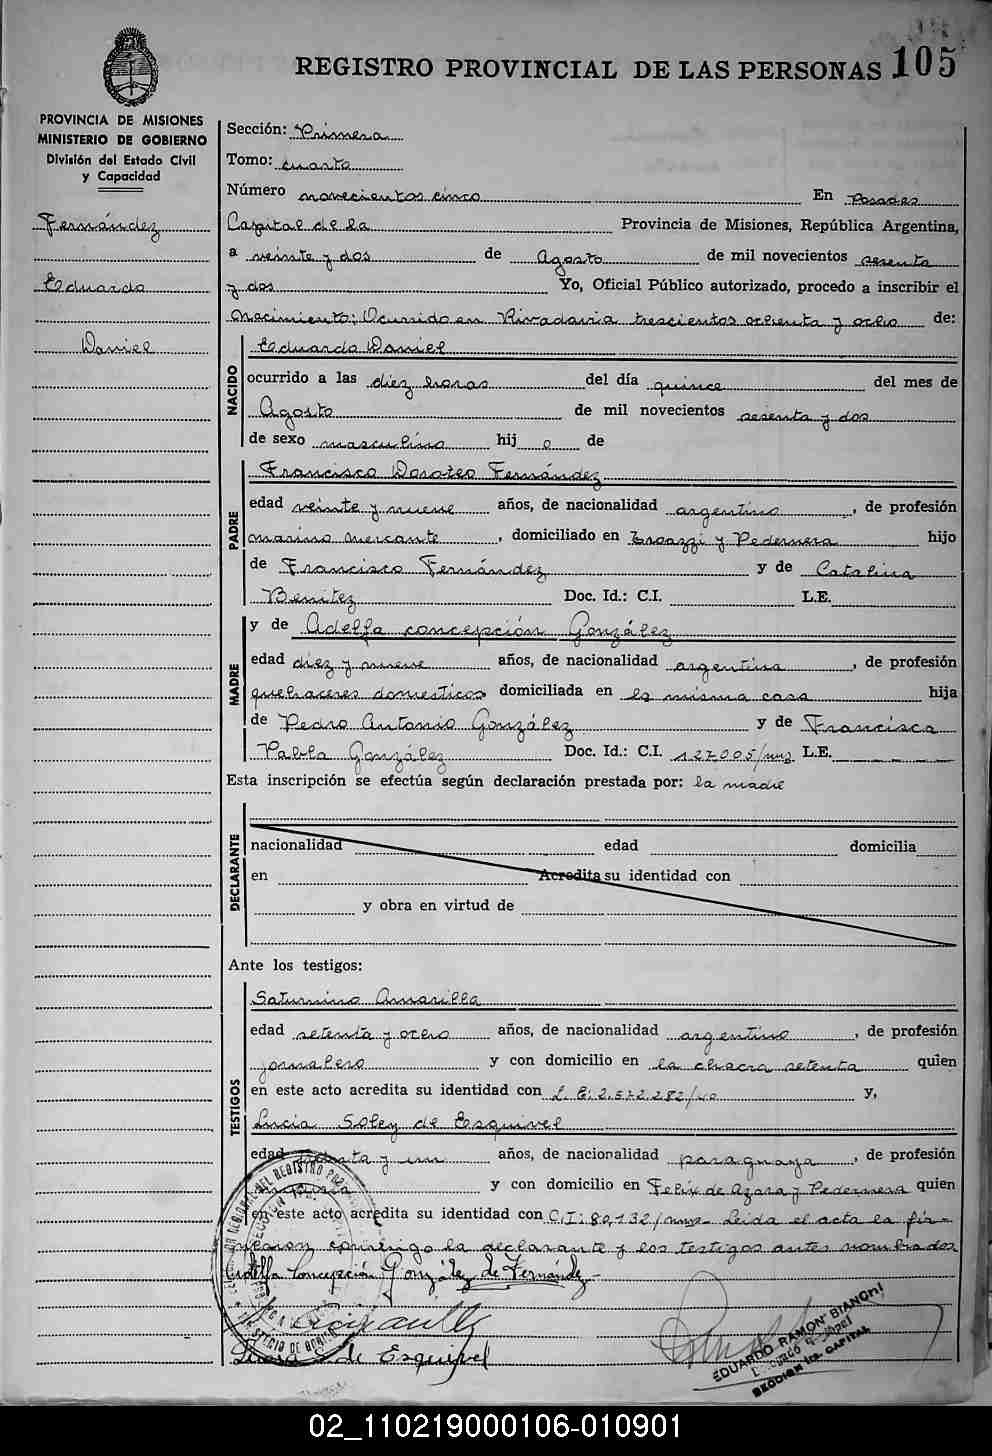 REGISTRO PROVINCIAL DE LAS PERSONAS 105
PROVINCIA DE MISIONES
MINISTERIO DE GOBIERNO
División del Estado Civil
y Capacidad
Fernández
Eduardo
Daniel
Sección: Primera
Tomo: cuarto
Número novecientos cinco En Posadas
Capital de la Provincia de Misiones, República Argentina,
a veinte y dos de Agosto de mil novecientos sesenta
y dos Yo, Oficial Público autorizado, procedo a inscribir el
Nacimiento; Ocurrido en Rivadavia trescientos ochenta y ocho de:
NACIDO
Eduardo Daniel
ocurrido a las diez horas del día quince del mes de
Agosto de mil novecientos sesenta y dos
de sexo masculino hij o de
PADRE
Francisco Doroteo Fernández
edad veinte y nueve años, de nacionalidad argentino, de profesión
marino mercante, domiciliado en y Pedernera hijo
de Francisco Fernández y de Catalina
Benitez Doc. Id.: C.I. L.E.
MADRE
y de Adelfa concepción González
edad diez y nueve años, de nacionalidad argentina, de profesión
quehaceres domesticos domiciliada en la misma casa hija
de Pedro Antonio González y de Francisca
Pabla González Doc. Id.: C.I. 127005/mnes L.E.
Esta inscripción se efectúa según declaración prestada por: la madre
DECLARANTE
nacionalidad edad domicilia
en Acredita su identidad con
y obra en virtud de
Ante los testigos:
TESTIGOS
Saturnino Amarilla
edad setenta y ocho años, de nacionalidad argentino, de profesión
jornalero y con domicilio en la chacra setenta quien
en este acto acredita su identidad con L.E: 2.572.282/40 y,
Lucia Soley de Esquivel
edad y un años, de nacionalidad paraguaya, de profesión
y con domicilio en Felix de Azara y Pedernera quien
en este acto acredita su identidad con C.I: 80,132/mnes- Leida el acta la fir-
maron conmigo la declarante y los testigos antes nombrados
Adelfa Concepción González de Fernández-
Lucia S de Esquivel
EDUARDO RAMON BIANCHI
SECCION 1ra. CAPITAL
02_110219000106-010901